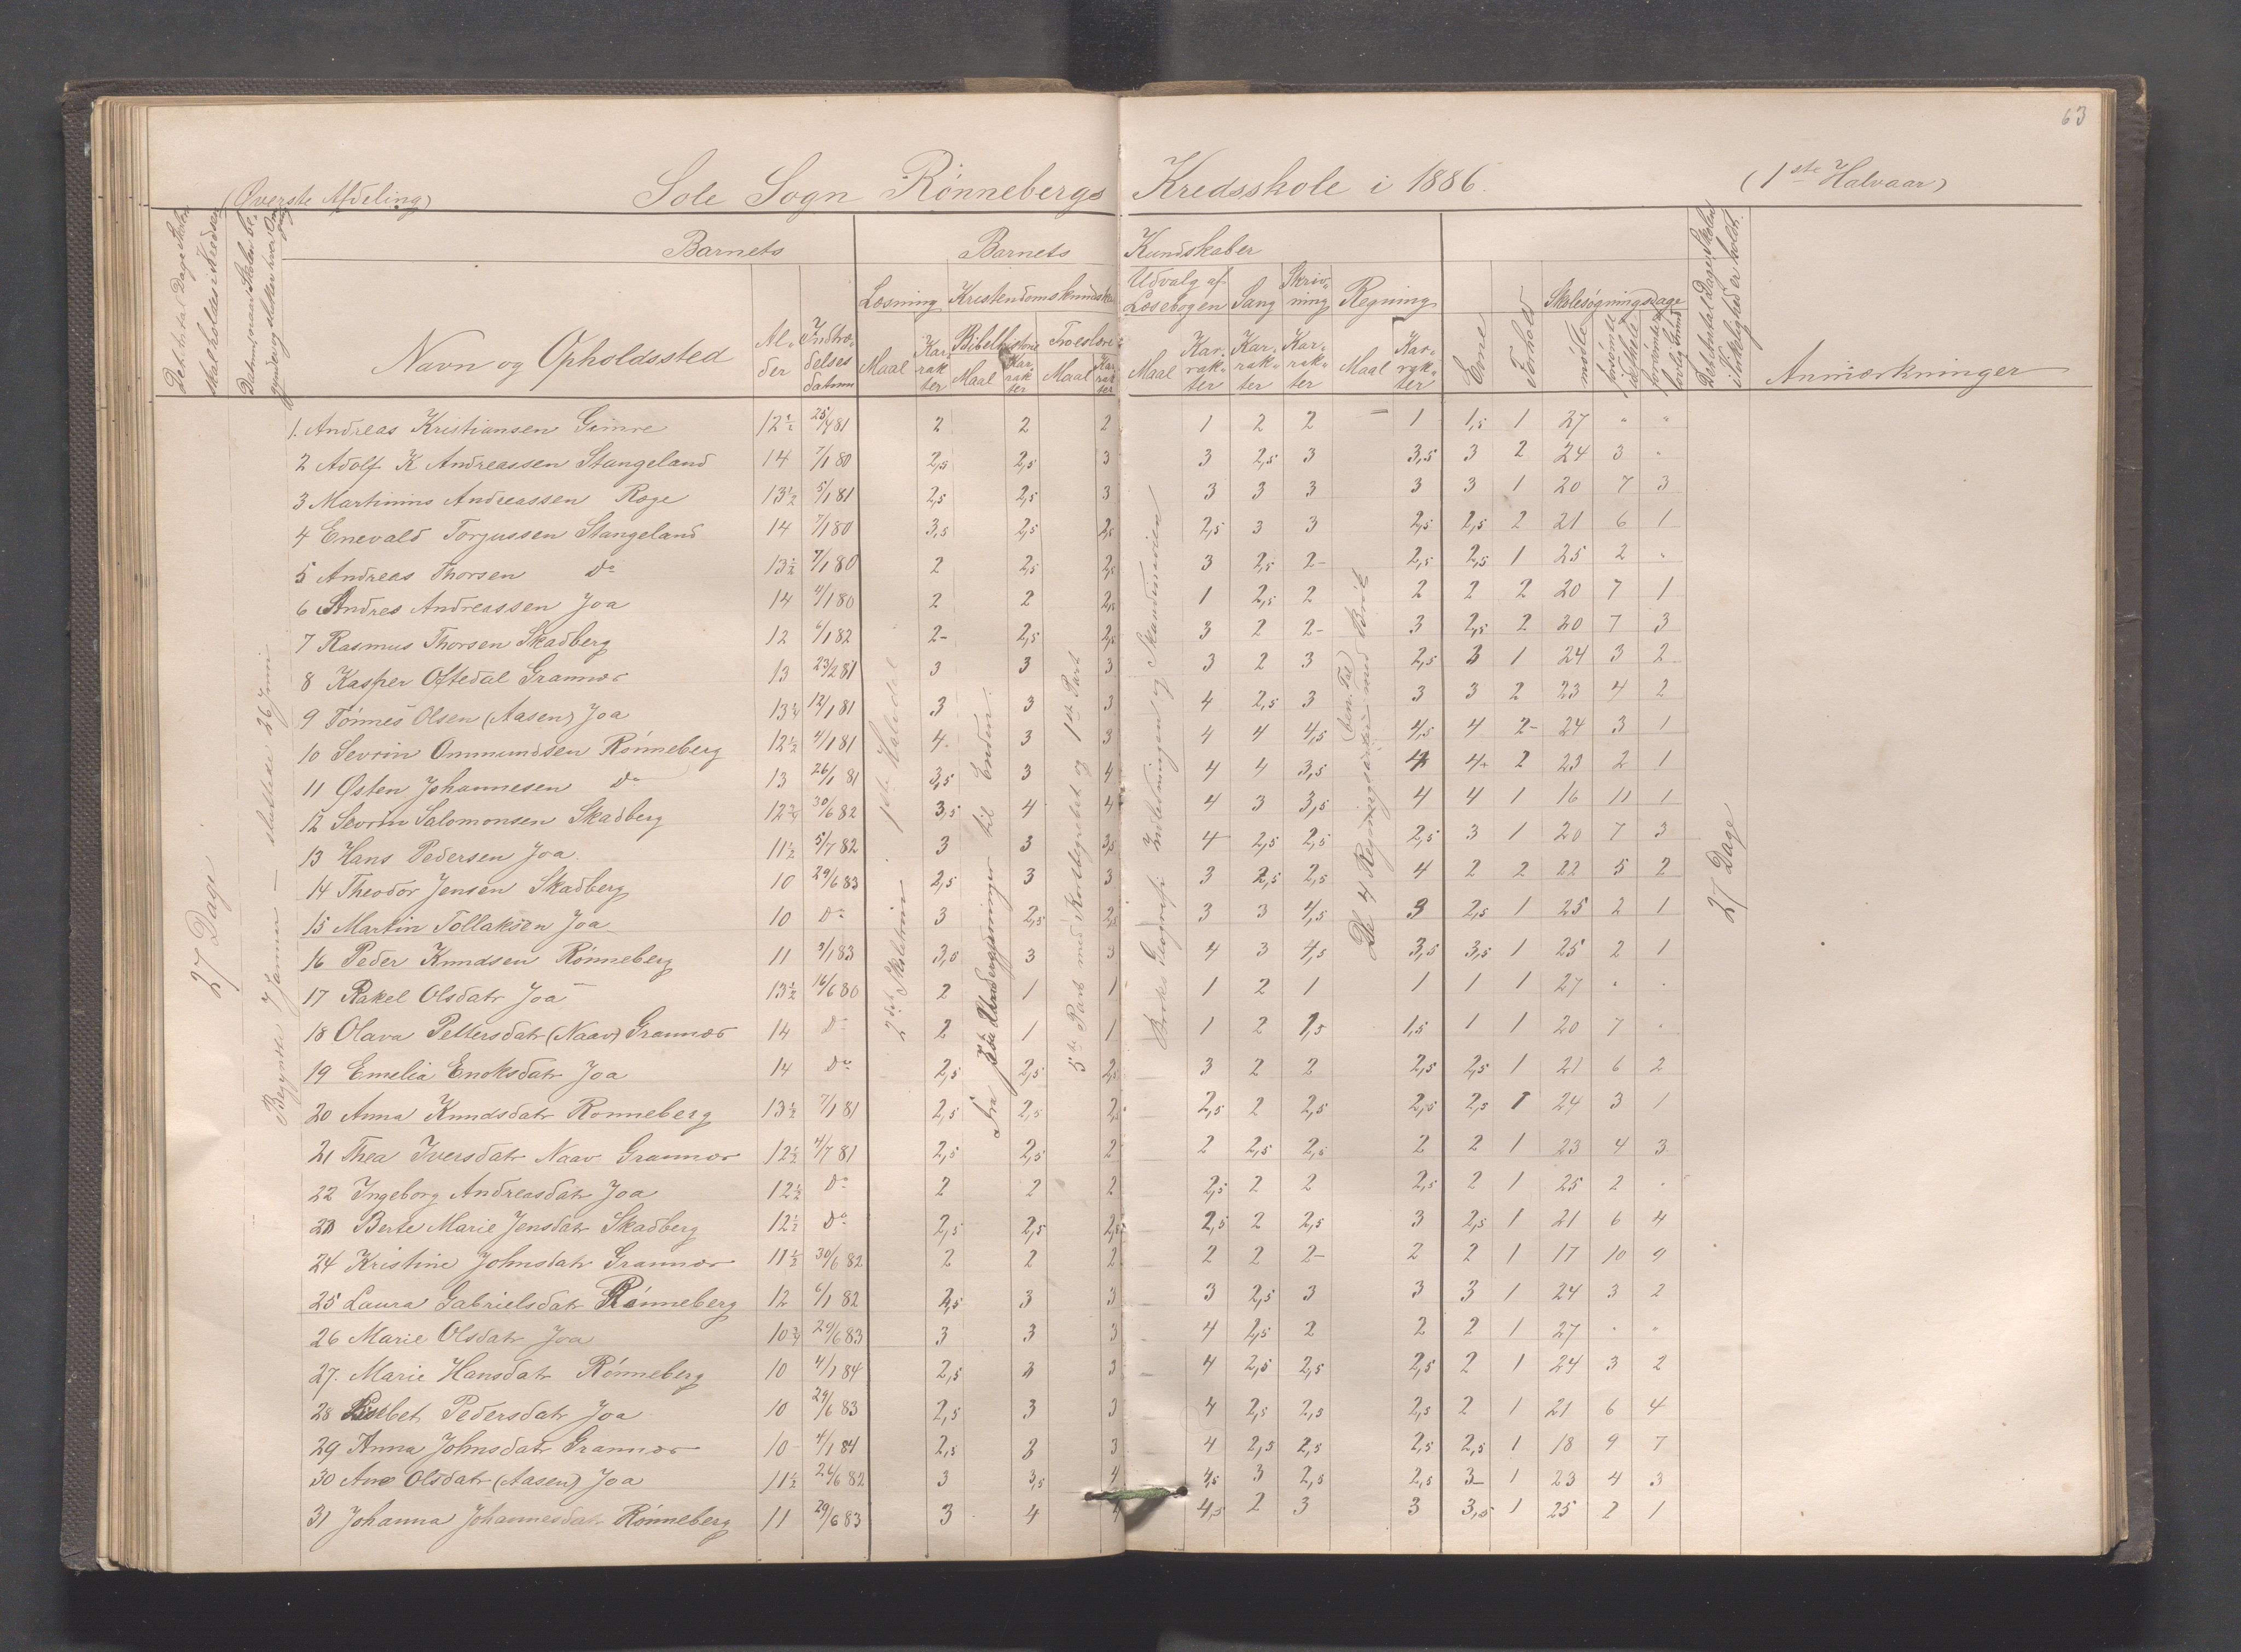 63
(Øverste Afdeling) Sole Sogn Rønnebergs Kredsskole i 1886. (1ste Halvaar)
Det Antal Dage Skolen skal holdes i Kredsen
Datum, naar Skolen begynder og slutter hver Omgang
Barnets
Barnets Kundskaber
Navn og Opholdssted
Alder
Indtrædelsesdatum
Læsning Kristendomskundskab
Udvalg af Læsebogen Sang Skrivning Regning
Bibelhistorie Troeslære
Maal Karrakter Maal Karrakter Maal Karrakter
Maal Karrakter Karrakter Karrakter Maal Karrakter
Evne
Forhold
Skolesøgningsdage
mødte
forsømte i det hele
forsømte af lovlig Grund
Det Antal Dage Skolen i Virkelighed er holdt.
Anmærkninger
27 Dage
Begyndte 7 Januar – sluttede 26 Juni
2det Skoletrin. 1ste Halvdel
til Enden.
5te Part med Kortbegrebet og 1ste Part
Geografi Indledningen og Skandinavien
De 4 Regningsarter med Brök
27 Dage
1. Andreas Kristiansen Gimre 12½ 25/4 81 2 2 2 1 2 2 – 1 1,5 1 27 " "
2 Adolf K Andreassen Stangeland 14 7/1 80 2,5 2,5 3 3 2,5 3 3,5 3 2 24 3 "
3 Martinius Andreassen Røge 13½ 5/1 81 2,5 2,5 3 3 3 3 3 3 1 20 7 3
4 Enevald Torjussen Stangeland 14 7/1 80 3,5 2,5 2,5 2,5 3 3 2,5 2,5 2 21 6 1
5 Andreas Thorsen Do 13½ 7/1 80 2 2,5 2,5 3 2,5 2– 2,5 2,5 1 25 2 "
6 Andres Andreassen Joa 14 4/1 80 2 2 2,5 1 2,5 2 2 2 2 20 7 1
7 Rasmus Thorsen Skadberg 12 6/1 82 2– 2,5 2,5 3 2 2– 3 2,5 2 20 7 3
8 Kasper Oftedal Grannes 13 23/2 81 3 3 3 3 2 3 2,5 3 1 24 3 2
9 Tönnes Olsen (Aasen) Joa 13¼ 12/1 81 3 3 3 4 2,5 3 3 3 2 23 4 2
10 Sevrin Ommundsen Rönneberg 12½ 4/1 81 4 3 3 4 4 4,5 4,5 4 2– 24 3 1
11 Østen Johannesen Do 13 26/1 81 3,5 3 4 4 4 3,5 4 4 2 23 2 1
12 Sevrin Salomonsen Skadberg 12¾ 30/6 82 3,5 4 4 4 3 3,5 4 4 1 16 11 1
13 Hans Pedersen Joa 11½ 5/7 82 3 3 3,5 4 2,5 2,5 2,5 3 1 20 7 3
14 Theodor Jensen Skadberg 10 29/6 83 2,5 3 3 3 2,5 2,5 4 2 2 22 5 2
15 Martin Tollaksen Joa 10 Do 3 2,5 2,5 3 3 4,5 3 2,5 1 25 2 1
16 Peder Knudsen Rönneberg 11 9/1 83 3,0 3 3 4 3 4,5 3,5 3,5 1 25 2 1
17 Rakel Olsdatr Joa 13½ 16/6 80 2 1 1 1 2 1 1 1 1 27 " "
18 Olava Pettersdatr (Naav) Grannes 14 Do 2 1 1 1 2 1,5 1,5 1 1 20 7 "
19 Emelia Enoksdatr Joa 14 Do 2,5 2,5 2,5 3 2 2 2,5 2,5 1 21 6 2
20 Anna Knudsdatr Rønneberg 13½ 7/1 81 2,5 2,5 2,5 2,5 2 2,5 2,5 2,5 1 24 3 1
21 Thea Iversdatr Naav Grannes 12½ 4/7 81 2,5 2,5 2 2 2,5 2,5 2 2 1 23 4 3
22 Ingeborg Andreasdatr Joa 12½ Do 2 2 2 2,5 2 2 2,5 2 1 25 2 "
23 Berte Marie Jensdatr Skadberg 12½ Do 2,5 2,5 2,5 2,5 2 2,5 3 2,5 1 21 6 4
24 Kristine Johnsdatr Grannes 11½ 30/6 82 2 2 2 2 2 2– 2 2 1 17 10 9
25 Laura Gabrielsdatr Rønneberg 12 6/1 82 2,5 3 3 3 2,5 3 3 3 1 24 3 2
26 Marie Olsdatr Joa 10¾ 29/6 83 3 3 3 4 2,5 2 2 2 1 27 " "
27. Marie Hansdatr Rönneberg 10 4/1 84 2,5 3 3 4 2,5 2,5 2,5 2 1 24 3 2
28 Lisebet Pedersdatr Joa 10 29/6 83 2,5 3 3 4 2,5 2,5 2,5 2 1 21 6 4
29 Anna Johnsdatr Grannes 10 4/1 84 2,5 3 3 4 2,5 2,5 2,5 2,5 1 18 9 7
30 Ane Olsdatr (Aasen) Joa 11½ 26/6 82 3 3,5 4 4,5 3 2,5 2,5 3 1 23 4 3
31 Johanna Johannesdatr Rönneberg 11 29/6 83 3 4 4 4,5 2 3 3 3,5 1 25 2 1